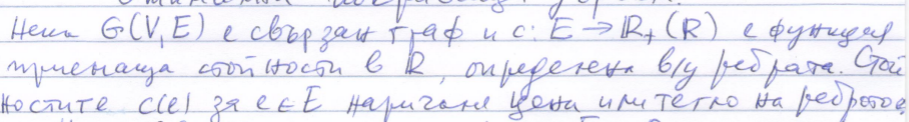 Нека G(V,E) е свързан граф и c: E → R₊ (R) е функция
приемаща стойности в R, определена в/у ребрата. Стой
ностите c(e) за e ∈ E наричаме цена или тегло на реброто e.